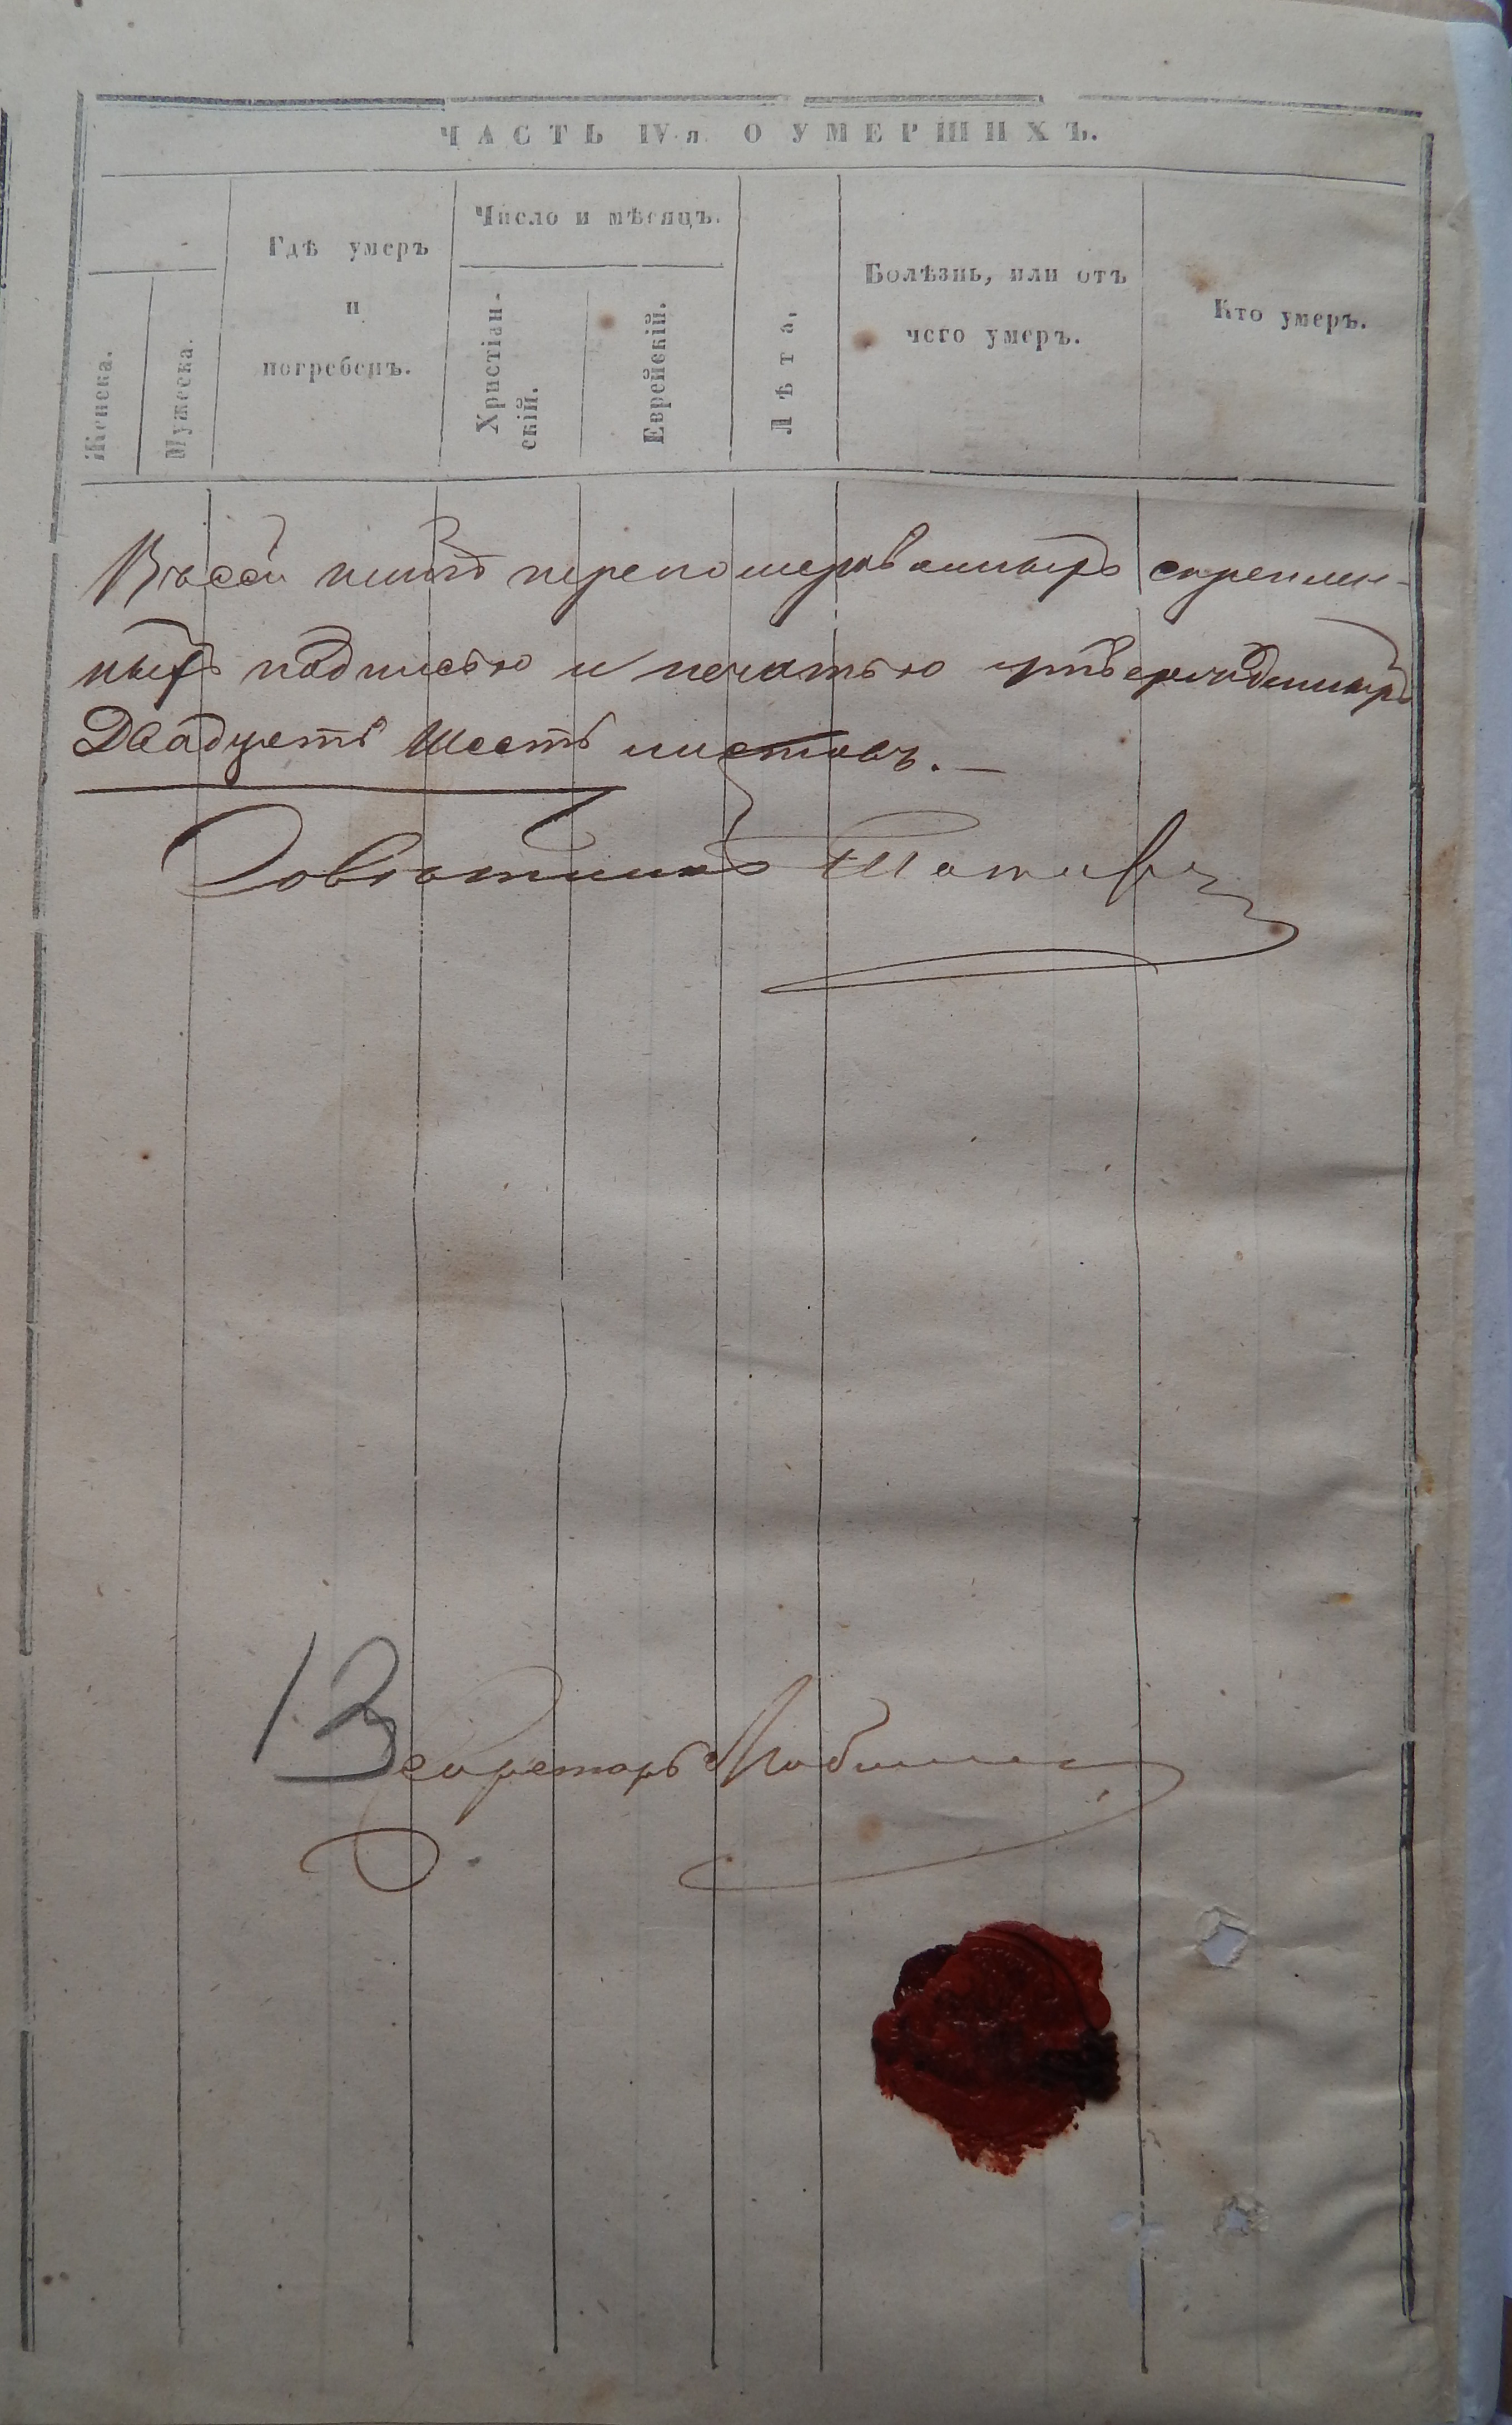 ЧАСТЬ IV-я О УМЕРШИХЪ.
Женска.
Мужеска.
Гдѣ умеръ
и
погребенъ.
Число и мѣсяцъ.
Христіан-
скій.
Еврейскій.
Лѣта.
Болѣзнь, или отъ
чего умеръ.
Кто умеръ.
Въ сей книгѣ перенумерованныхъ скреплен-
ныхъ подписью и печатью утвержденныхъ
Двадцать Шесть листовъ.—
Совѣтникъ
13
Секретарь